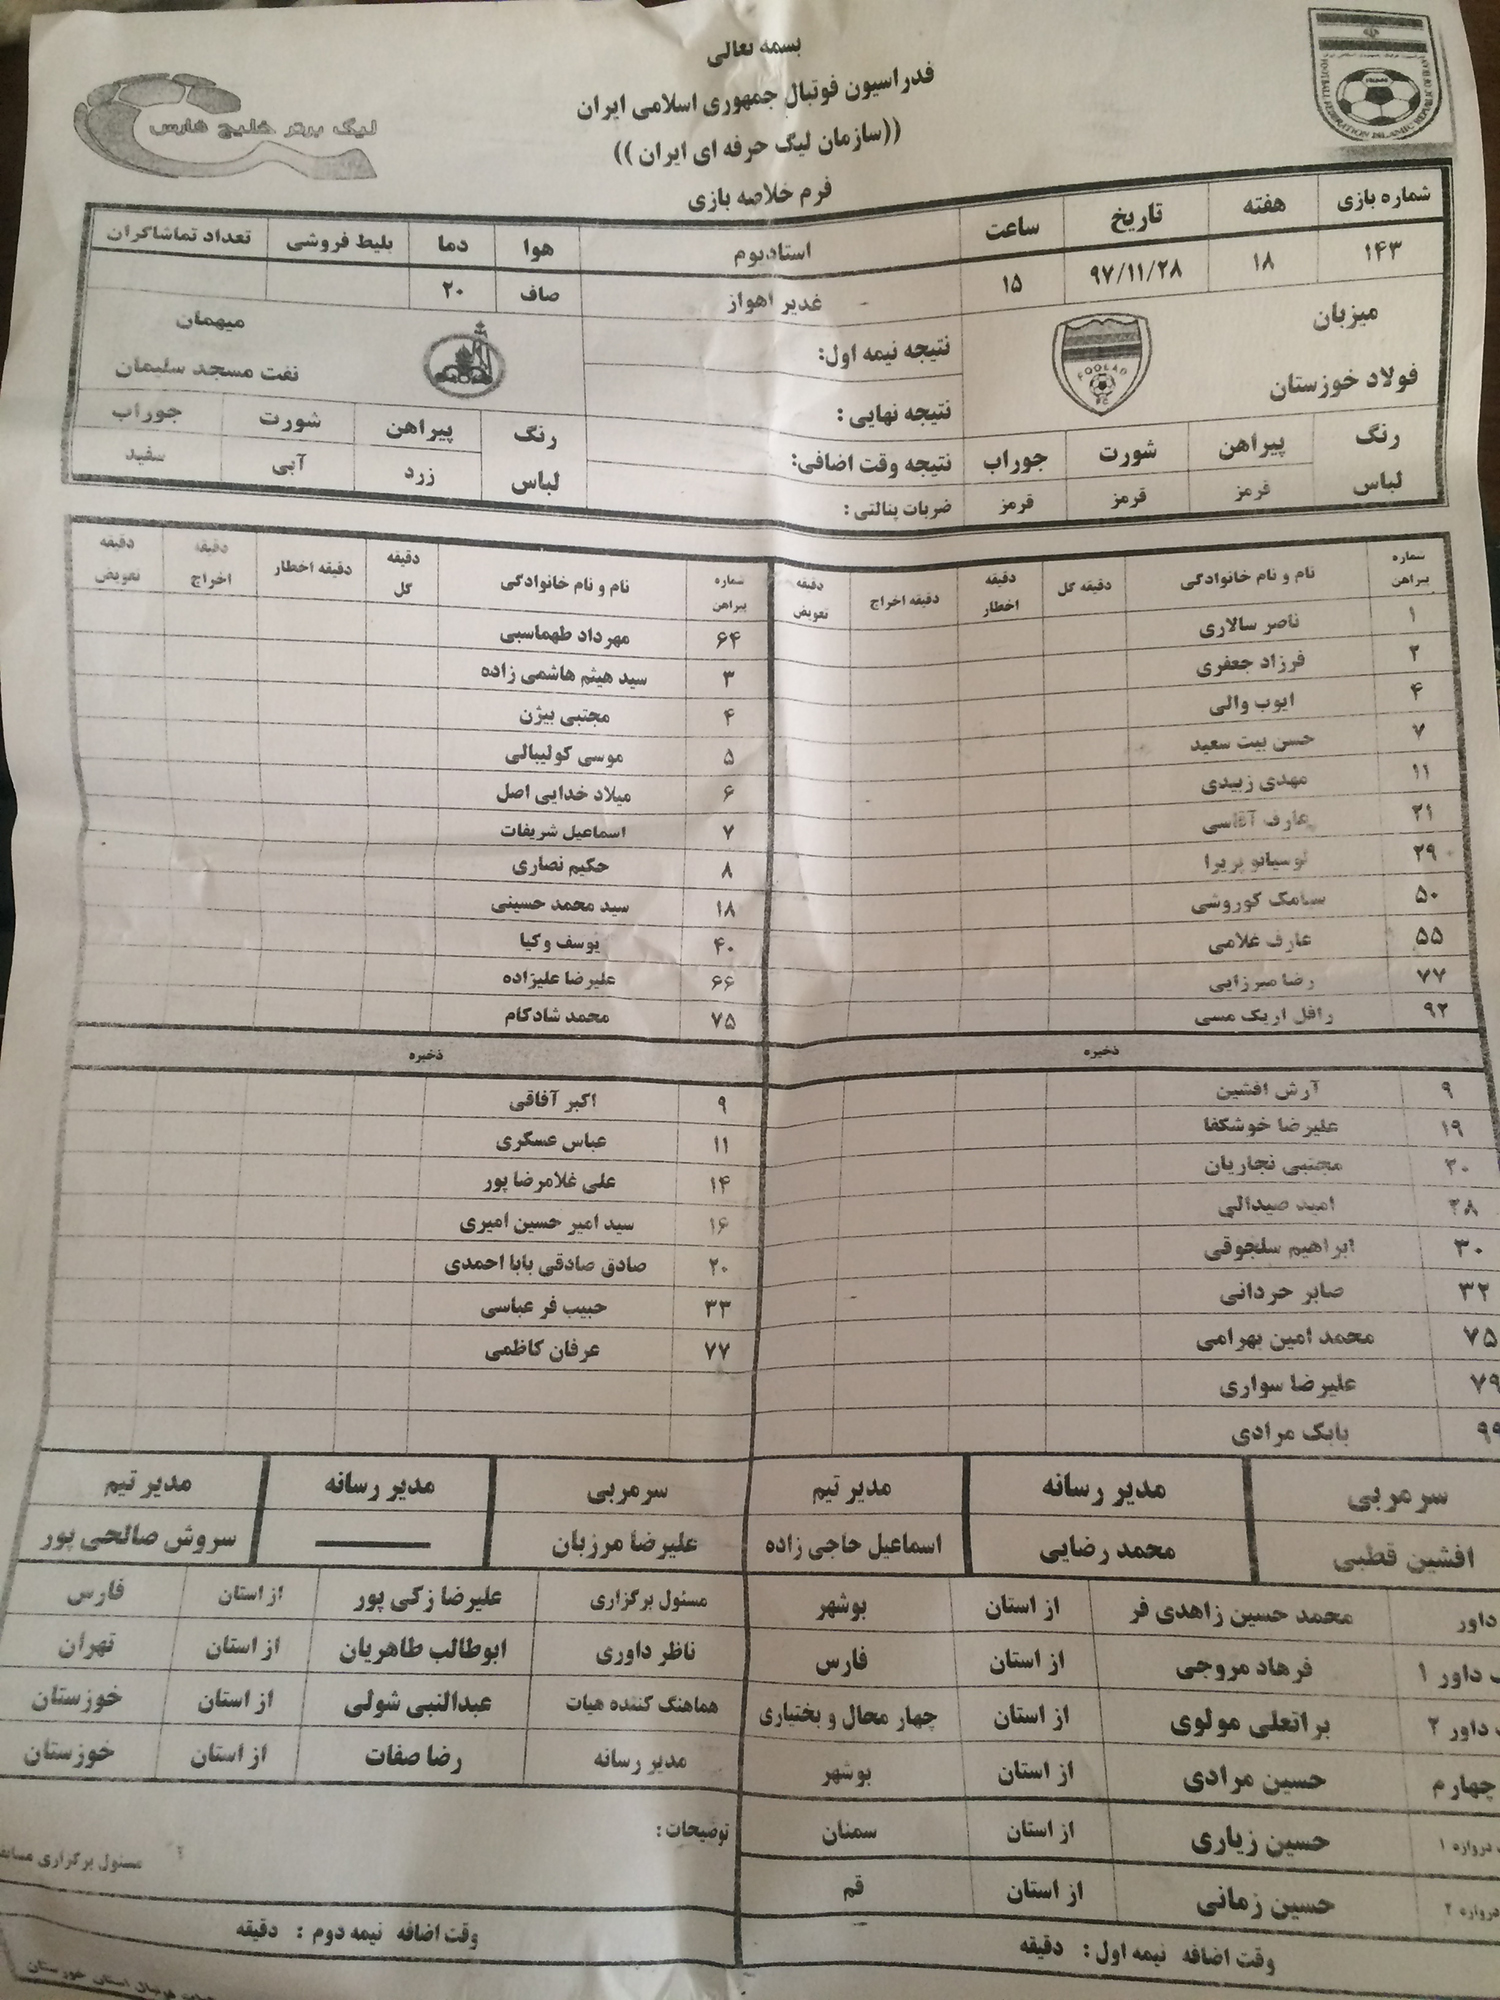 بسمه تعالی
فدراسیون فوتبال جمهوری اسلامی ایران
((سازمان لیگ حرفه ای ایران))
فرم خلاصه بازی
لیگ برتر خلیج فارس
FOOTBALL FEDERATION ISLAMIC REPUBLIC OF IRAN
شماره بازی هفته تاریخ ساعت استادیوم هوا دما بلیط فروشی تعداد تماشاگران
۱۴۳ ۱۸ ۹۷/۱۱/۲۸ ۱۵ غدیر اهواز صاف ۲۰
میزبان نتیجه نیمه اول: میهمان
فولاد خوزستان FOOLAD FC نتیجه نهایی : نفت مسجد سلیمان
رنگ پیراهن شورت جوراب نتیجه وقت اضافی: رنگ پیراهن شورت جوراب
لباس قرمز قرمز قرمز ضربات پنالتی : لباس زرد آبی سفید
شماره پیراهن نام و نام خانوادگی دقیقه گل دقیقه اخطار دقیقه اخراج دقیقه تعویض شماره پیراهن نام و نام خانوادگی دقیقه گل دقیقه اخطار دقیقه اخراج دقیقه تعویض
۱ ناصر سالاری ۶۴ مهرداد طهماسبی
۲ فرزاد جعفری ۳ سید هیثم هاشمی زاده
۴ ایوب والی ۴ مجتبی بیژن
۷ حسن بیت سعید ۵ موسی کولیبالی
۱۱ مهدی زبیدی ۶ میلاد خدایی اصل
۲۱ عارف آقاسی ۷ اسماعیل شریفات
۲۹ لوسیانو پریرا ۸ حکیم نصاری
۵۰ سیامک کوروشی ۱۸ سید محمد حسینی
۵۵ عارف غلامی ۴۰ یوسف وکیا
۷۷ رضا میرزایی ۶۶ علیرضا علیزاده
۹۲ رافل اریک مسی ۷۵ محمد شادکام
ذخیره ذخیره
۹ آرش افشین ۹ اکبر آفاقی
۱۹ علیرضا خوشکفا ۱۱ عباس عسکری
۲۰ مجتبی نجاریان ۱۴ علی غلامرضا پور
۲۸ امید صیدالی ۱۶ سید امیر حسین امیری
۳۰ ابراهیم سلجوقی ۲۰ صادق صادقی بابا احمدی
۳۲ صابر حردانی ۳۳ حبیب فر عباسی
۷۵ محمد امین بهرامی ۷۷ عرفان کاظمی
۷۹ علیرضا سواری
۹۹ بابک مرادی
سرمربی مدیر رسانه مدیر تیم سرمربی مدیر رسانه مدیر تیم
افشین قطبی محمد رضایی اسماعیل حاجی زاده علیرضا مرزبان سروش صالحی پور
داور محمد حسین زاهدی فر از استان بوشهر مسئول برگزاری علیرضا زکی پور از استان فارس
داور ۱ فرهاد مروجی از استان فارس ناظر داوری ابوطالب طاهریان از استان تهران
داور ۲ براتعلی مولوی از استان چهار محال و بختیاری هماهنگ کننده هیات عبدالنبی شولی از استان خوزستان
چهارم حسین مرادی از استان بوشهر مدیر رسانه رضا صفات از استان خوزستان
دروازه ۱ حسین زیاری از استان سمنان توضیحات :
مسئول برگزاری
دروازه ۲ حسین زمانی از استان قم
وقت اضافه نیمه اول : دقیقه وقت اضافه نیمه دوم : دقیقه
فوتبال استان خوزستان